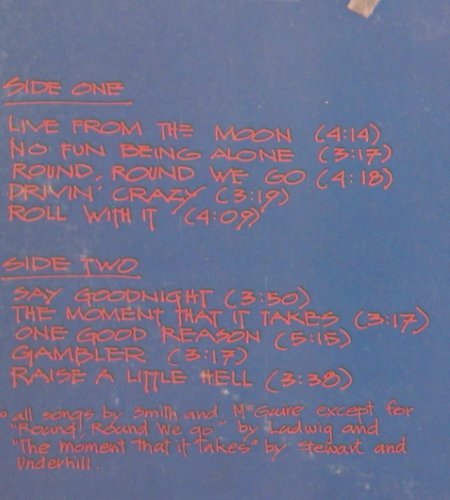 SIDE ONE
LIVE FROM THE MOON (4:14)
NO FUN BEING ALONE (3:17)
ROUND, ROUND WE GO (4:18)
DRIVIN' CRAZY (3:19)
ROLL WITH IT (4:09)
SIDE TWO
SAY GOODNIGHT (3:50)
THE MOMENT THAT IT TAKES (3:17)
ONE GOOD REASON (5:15)
GAMBLER (3:17)
RAISE A LITTLE HELL (3:38)
° all songs by Smith and McGwire except for
"Round, Round We go" by Ludwig and
"The moment that it takes" by Stewart and
Underhill.